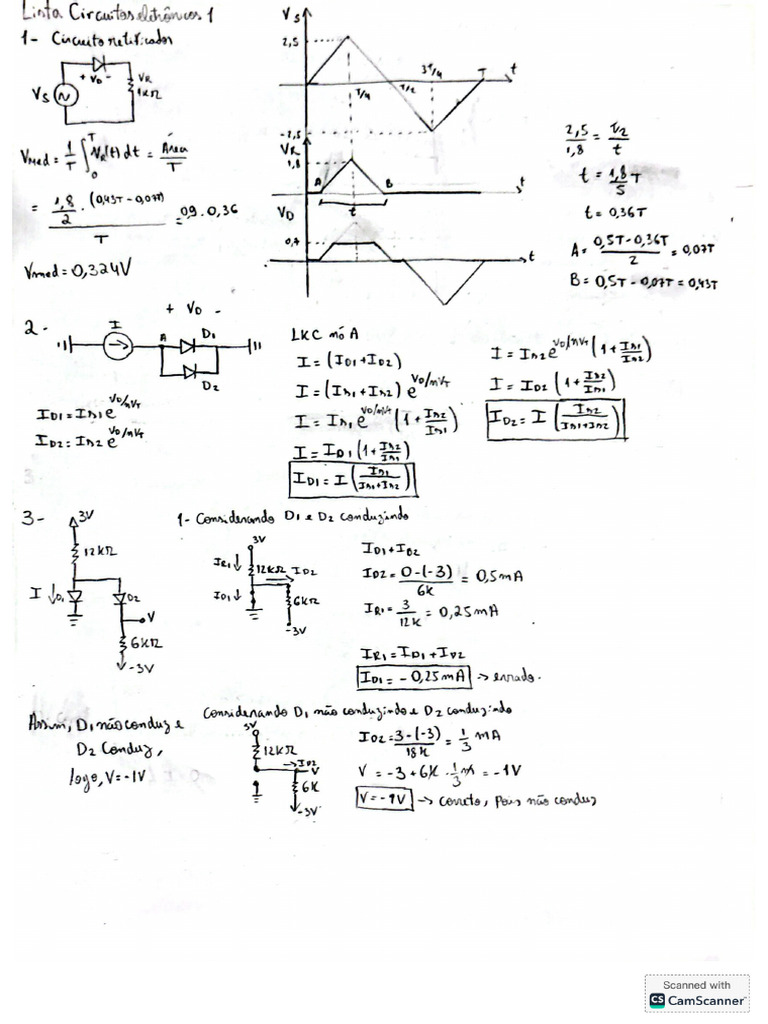 Lista Circuitos eletrônicos 1
1- Circuito retificador
+ VD -
VS
VR
1kΩ
Vmed = 1/T ∫₀ᵀ VR(t) dt = Área/T
= 1,8/2 · (0,43T - 0,07T) / T = 0,9 . 0,36
Vmed = 0,324V
VS
2,5
3T/4
T
t
T/4
T/2
-2,5
VR
1,8
A
B
t
t
VD
0,7
t
2,5/1,8 = T/2/t
t = 1,8/5 T
t = 0,36T
A = 0,5T - 0,36T / 2 = 0,07T
B = 0,5T - 0,07T = 0,43T
2-
+ VD -
I
A
D1
D2
ID1 = IS1 e^VD/nVT
ID2 = IS2 e^VD/nVT
LKC nó A
I = (ID1 + ID2)
I = (IS1 + IS2) e^VD/nVT
I = IS1 e^VD/nVT (1 + IS2/IS1)
I = ID1 (1 + IS2/IS1)
ID1 = I (IS1/IS1+IS2)
I = IS2 e^VD/nVT (1 + IS1/IS2)
I = ID2 (1 + IS2/IS1)
ID2 = I (IS2/IS1+IS2)
3-
3V
12kΩ
I
D1
D2
V
6kΩ
-3V
1- Considerando D1 e D2 conduzindo
3V
IR1
12kΩ
ID2
ID1
6kΩ
-3V
ID1 + ID2
ID2 = 0-(-3)/6K = 0,5mA
IR1 = 3/12K = 0,25 mA
IR1 = ID1 + ID2
ID1 = -0,25mA → errado.
Considerando D1 não conduzindo e D2 conduzindo
Assim, D1 não conduz e
D2 conduz,
logo, V = -1V
3V
12kΩ
ID2
V
6K
-3V
ID2 = 3-(-3)/18K = 1/3 mA
V = -3 + 6K · 1/3 m = -1V
V = -1V → correto, pois não conduz
Scanned with
CS CamScanner